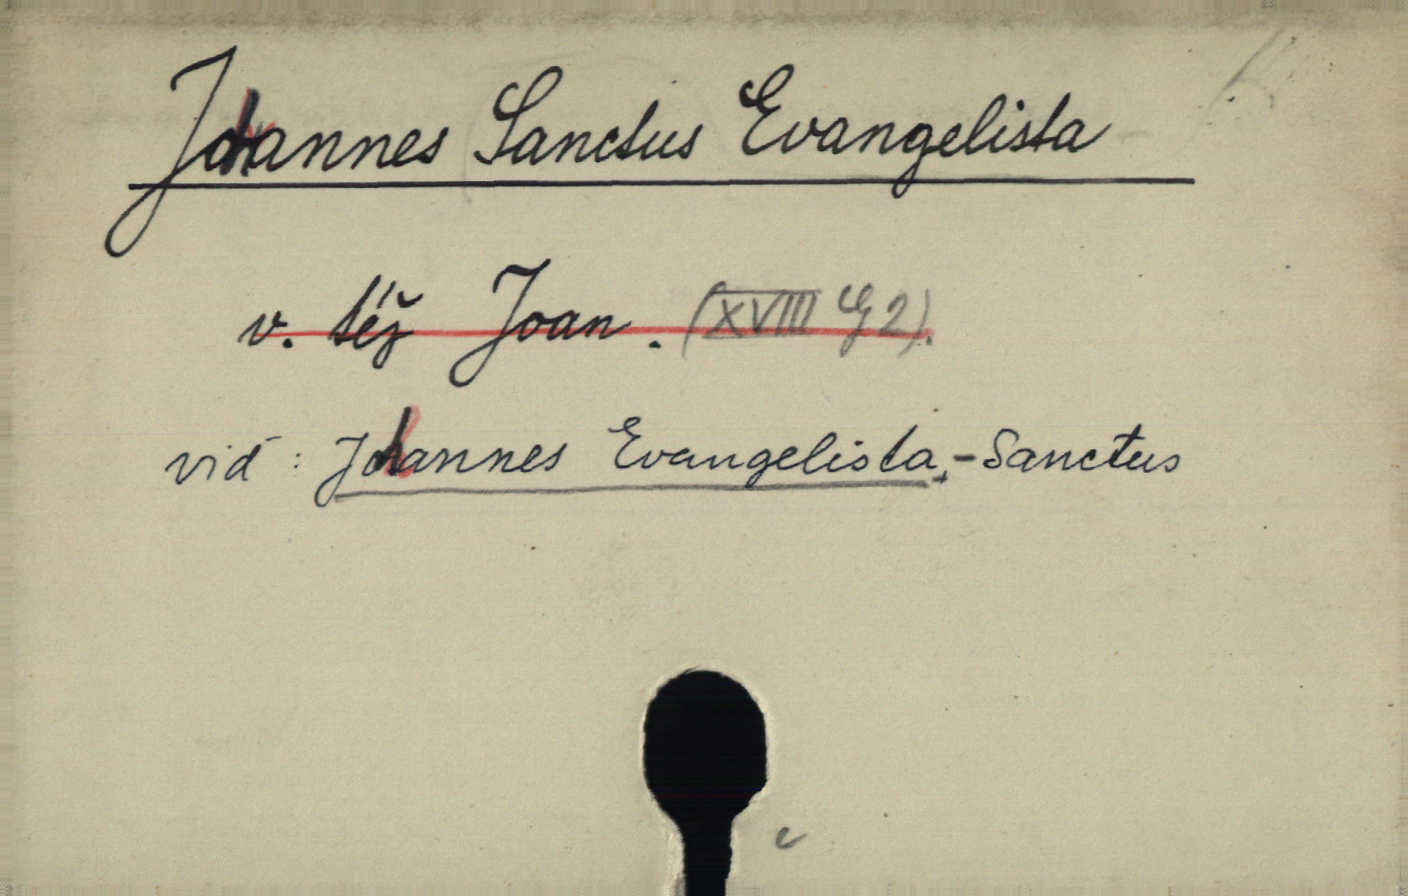 Johannes Sanctus Evangelista
v. též Joan. (XVIII G 2).
vid: Johannes Evangelista, - Sanctus